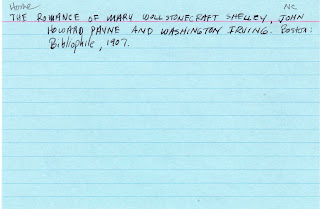 Home
NC
THE ROMANCE OF MARY WOLLSTONECRAFT SHELLEY, JOHN
HOWARD PAYNE AND WASHINGTON IRVING. Boston:
Bibliophile, 1907.